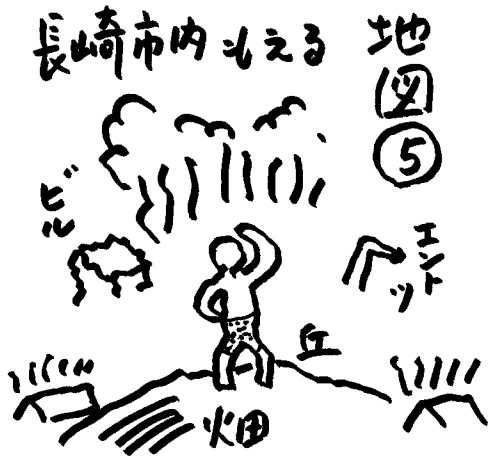 長崎市内もえる
地図⑤
ビル
エントツ
丘
畑